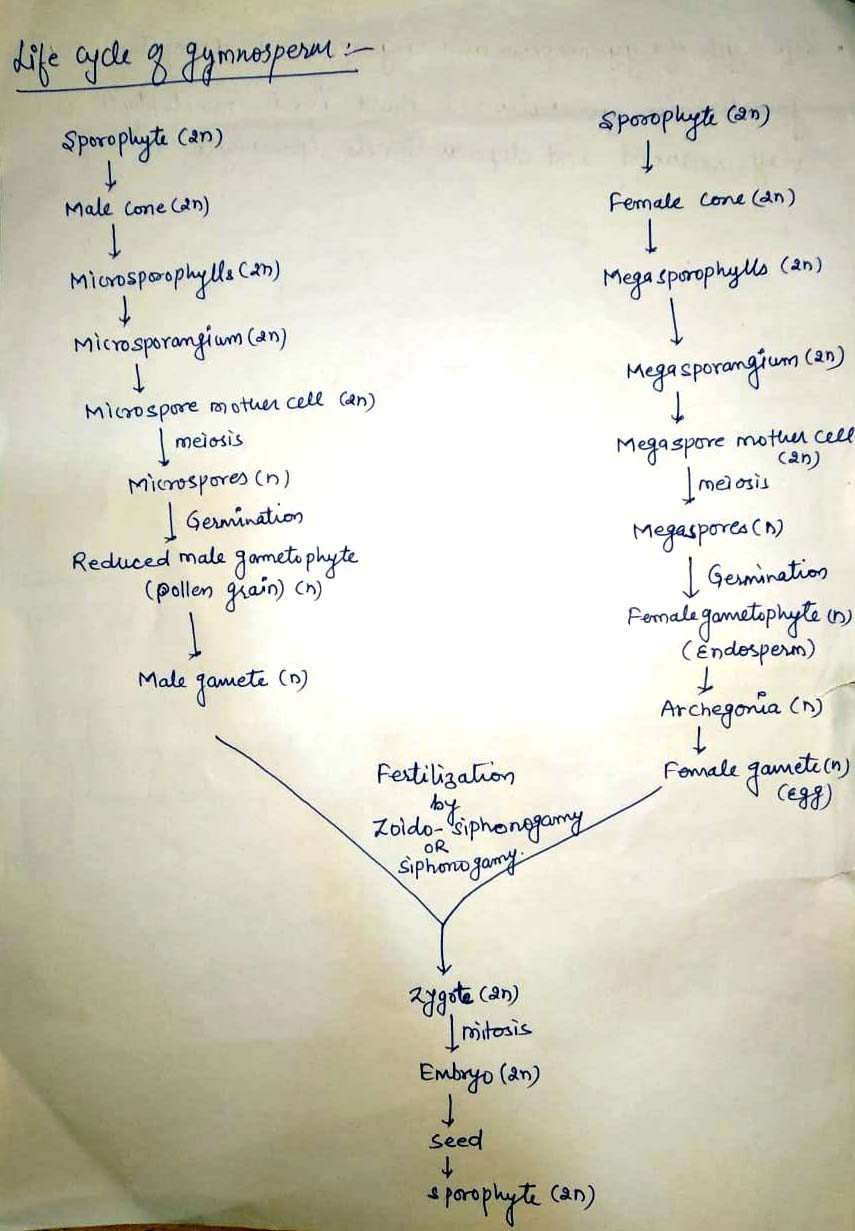 Life cycle of gymnosperm :-
Sporophyte (2n)
Male cone (2n)
Microsporophylls (2n)
Microsporangium (2n)
Microspore mother cell (2n)
meiosis
Microspores (n)
Germination
Reduced male gametophyte
(pollen grain) (n)
Male gamete (n)
Sporophyte (2n)
Female cone (2n)
Megasporophylls (2n)
Megasporangium (2n)
Megaspore mother cell
(2n)
meiosis
Megaspores (n)
Germination
Female gametophyte (n)
(Endosperm)
Archegonia (n)
Female gamete (n)
(Egg)
Fertilization
by
Zoido-siphonogamy
OR
siphonogamy.
Zygote (2n)
mitosis
Embryo (2n)
Seed
Sporophyte (2n)